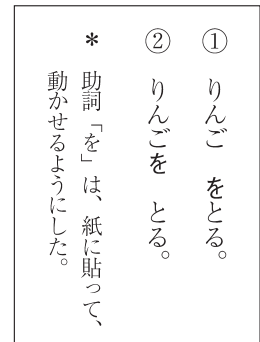 ① りんご　をとる。
② りんごを　とる。
＊ 助詞「を」は、紙に貼って、
動かせるようにした。